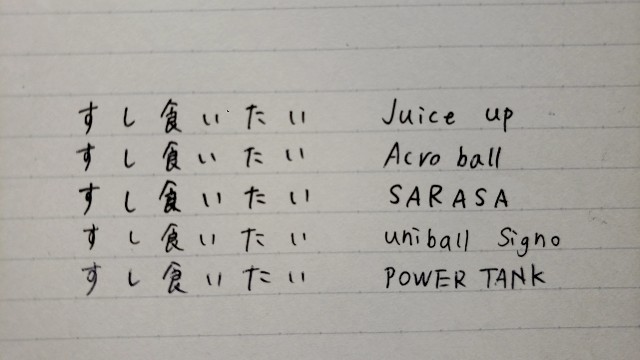 すし食いたい Juice up
すし食いたい Acro ball
すし食いたい SARASA
すし食いたい uniball Signo
すし食いたい POWER TANK